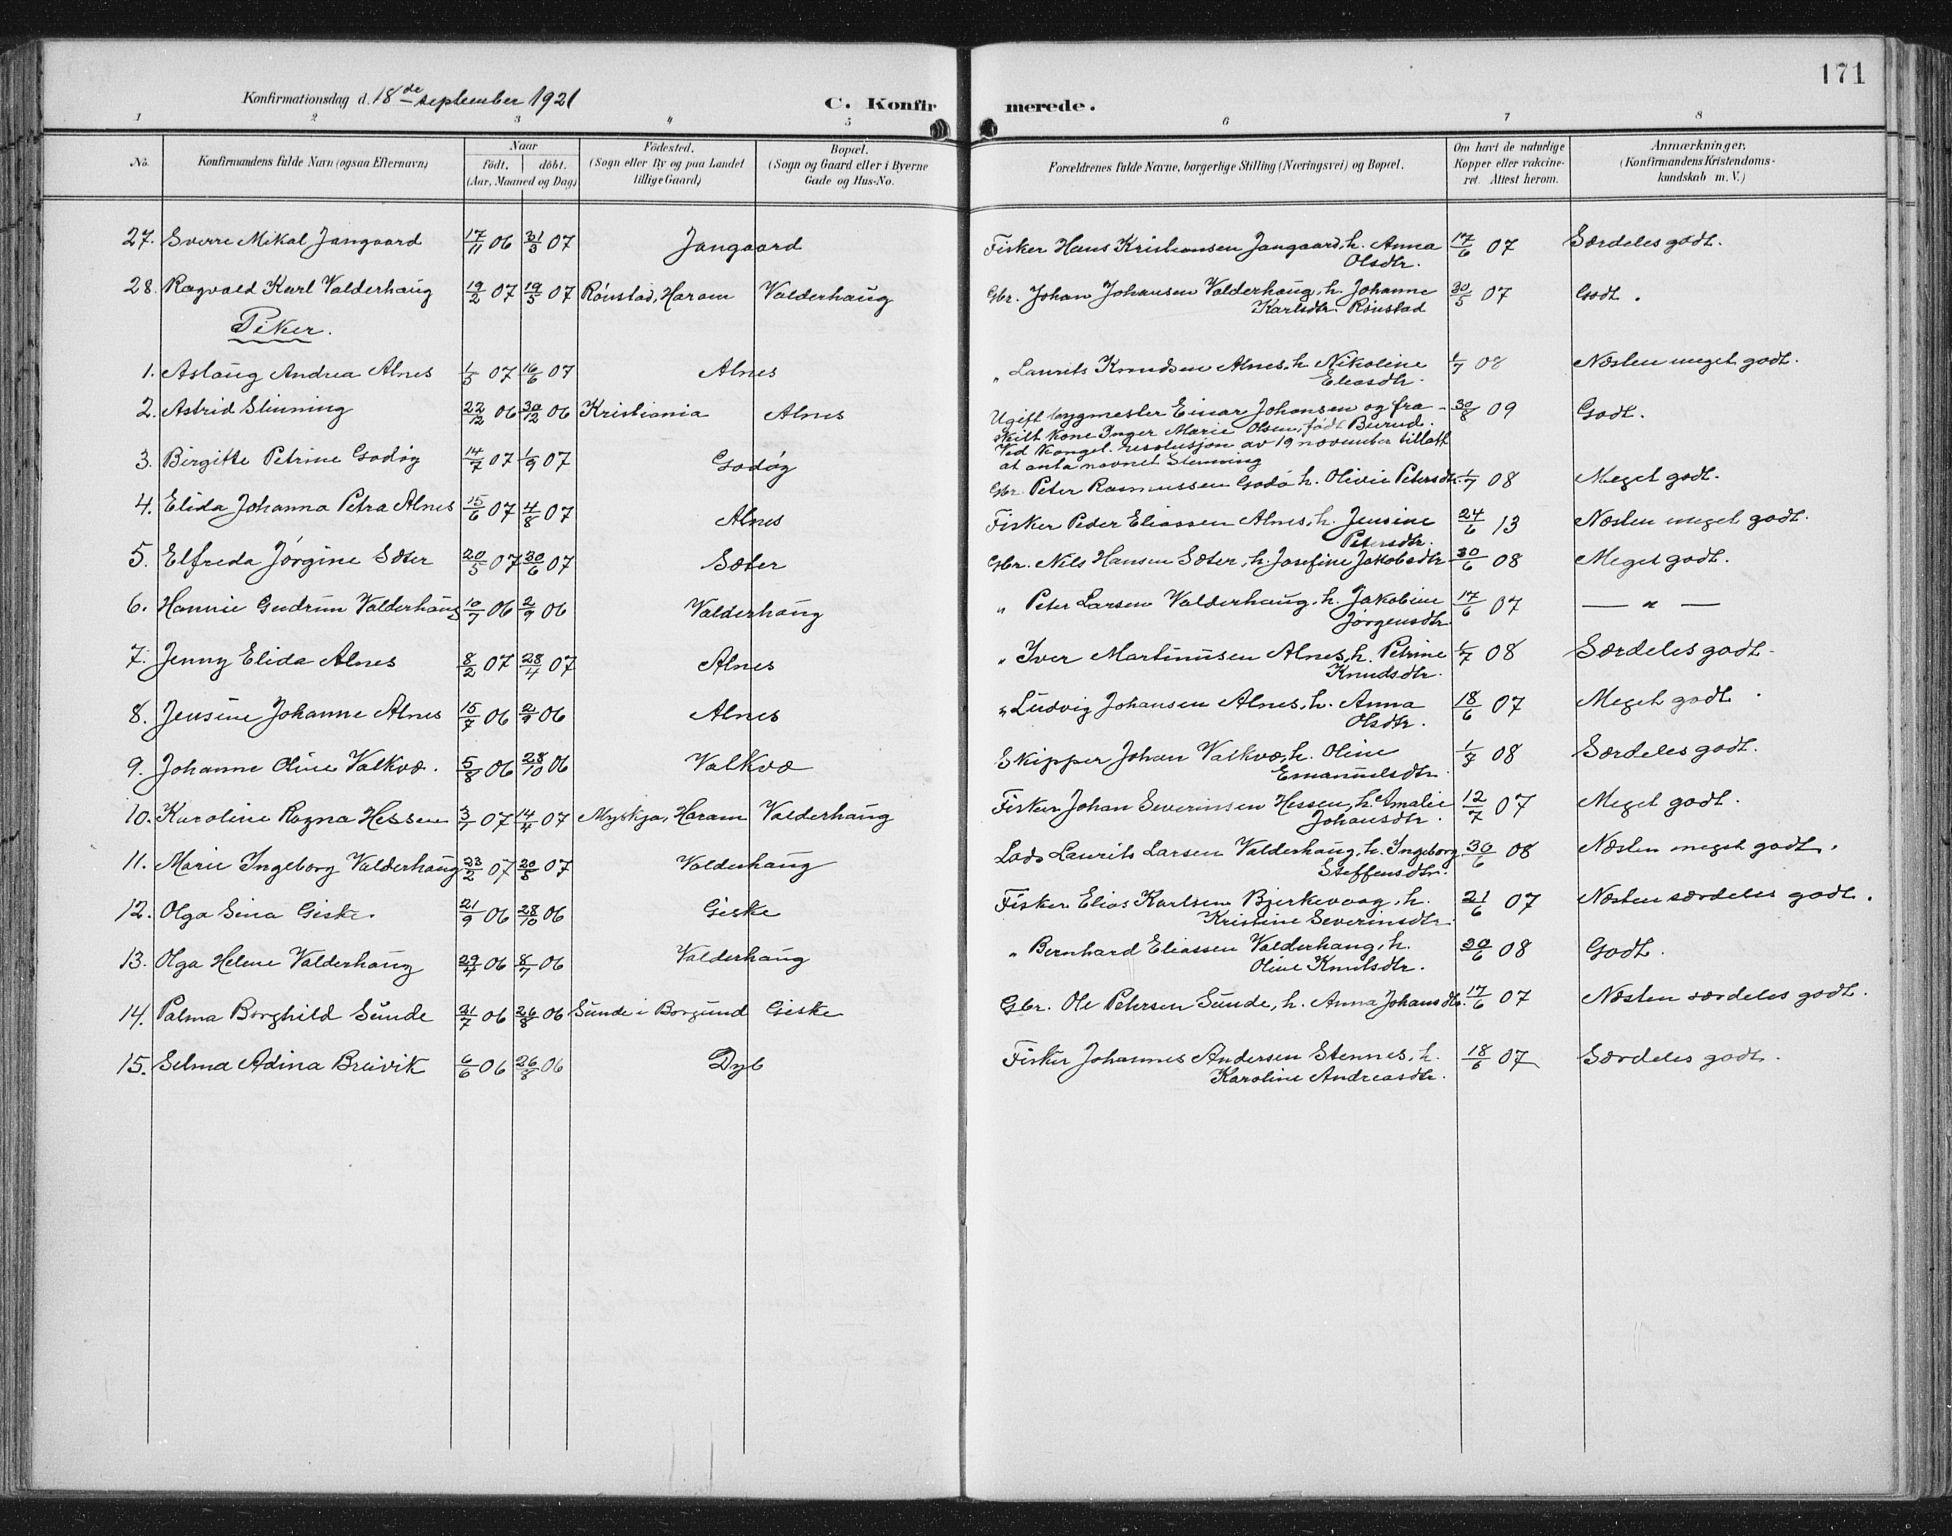 171
Konfirmationsdag d. 18de september 1921
C. Konfirmerede.
1 2 3 4 5 6 7 8
No. Konfirmandens fulde Navn (ogsaa Efternavn) Naar født. døbt. (Aar, Maaned og Dag) Fødested. (Sogn eller By og paa Landet tillige Gaard) Bopæl. (Sogn og Gaard eller i Byerne Gade og Hus-No. Forældrenes fulde Navne, borgerlige Stilling (Næringsvei) og Bopæl. Om havt de naturlige Kopper eller vakcineret. Attest herom. Anmærkninger. (Konfirmandens Kristendomskundskab m. V.)
27. Sverre Mikal Jangaard 17/11 06 31/3 07 Jangaard Fisker Hans Kristiansen Jangaard, h. Anna 17/6 07 Særdeles godt.
Olsdtr.
28. Ragvald Karl Valderhaug 19/2 07 19/5 07 Rønstad, Haram Valderhaug Gbr. Johan Johansen Valderhaug, h. Johanne 30/5 07 Godt.
Karlsdtr. Rønstad
Piker.
1. Aslaug Andrea Alnes 1/5 07 16/6 07 Alnes " Laurits Knudsen Alnes, h. Nikoline 1/7 08 Næsten meget godt.
Eliasdtr.
2. Astrid Stenning 22/12 06 30/12 06 Kristiania Alnes Ugift bygmester Einar Johansen og fra- 30/8 09 Godt.
skilt kone Inger Marie Olsen, født Bierud.
Ved kongel. resolusjon av 19 november tillatt
at anta navnet Stenning
3. Birgitte Petrine Godøy 14/7 07 1/9 07 Godøy Gbr. Peter Rasmussen Godø h. Olivie Petersdtr. 1/7 08 Meget godt.
4. Elida Johanna Petra Alnes 15/6 07 4/8 07 Alnes Fisker Peder Eliassen Alnes, h. Jensine 24/6 13 Næsten meget godt.
Petersdtr.
5. Elfreda Jørgine Sæter 20/5 07 30/6 07 Sæter Gbr. Nils Hansen Sæter, h. Josefine Jakobsdtr 30/6 08 Meget godt.
6. Hannie Gudrun Valderhaug 10/7 06 2/9 06 Valderhaug " Peter Larsen Valderhaug, h. Jakobine 17/6 07 — " —
Jørgensdtr.
7. Jenny Elida Alnes 8/2 07 28/4 07 Alnes " Iver Martinusen Alnes, h. Petrine 1/7 08 Særdeles godt.
Knudsdtr.
8. Jensine Johanne Alnes 15/7 06 2/9 06 Alnes " Ludvig Johansen Alnes, h. Anna 18/6 07 Meget godt.
Olsdtr.
9. Johanne Oline Valkvæ. 5/8 06 28/10 06 Valkvæ Skipper Johan Valkvæ, h. Oline 1/7 08 Særdeles godt.
Emanuelsdtr.
10. Karoline Ragna Hessen 3/1 07 14/4 07 Myskja, Haram Valderhaug Fisker Johan Severinsen Hessen, h. Amalie 12/7 07 Meget godt.
Johansdtr.
11. Marie Ingeborg Valderhaug 23/2 07 20/5 07 Valderhaug Lods Laurits Larsen Valderhaug, h. Ingeborg 30/6 08 Næsten meget godt.
Steffensdtr.
12. Olga Sina Giske. 21/9 06 28/10 06 Giske Fisker Elias Karlsen Bjerkevaag, h. 21/6 07 Næsten særdeles godt.
Kristine Severinsdtr.
13. Olga Helene Valderhaug 29/4 06 8/7 06 Valderhaug " Bernhard Eliassen Valderhaug, h. 30/6 08 Godt.
Oline Knutsdtr.
14. Palma Borghild Sunde 21/7 06 26/8 06 Sunde i Borgund Giske Gbr. Ole Petersen Sunde, h. Anna Johansdtr. 17/6 07 Næsten særdeles godt.
15. Selma Adina Breivik 6/6 06 26/8 06 Dyb Fisker Johannes Andersen Stennes, h. 18/6 07 Særdeles godt.
Karoline Andreasdtr.